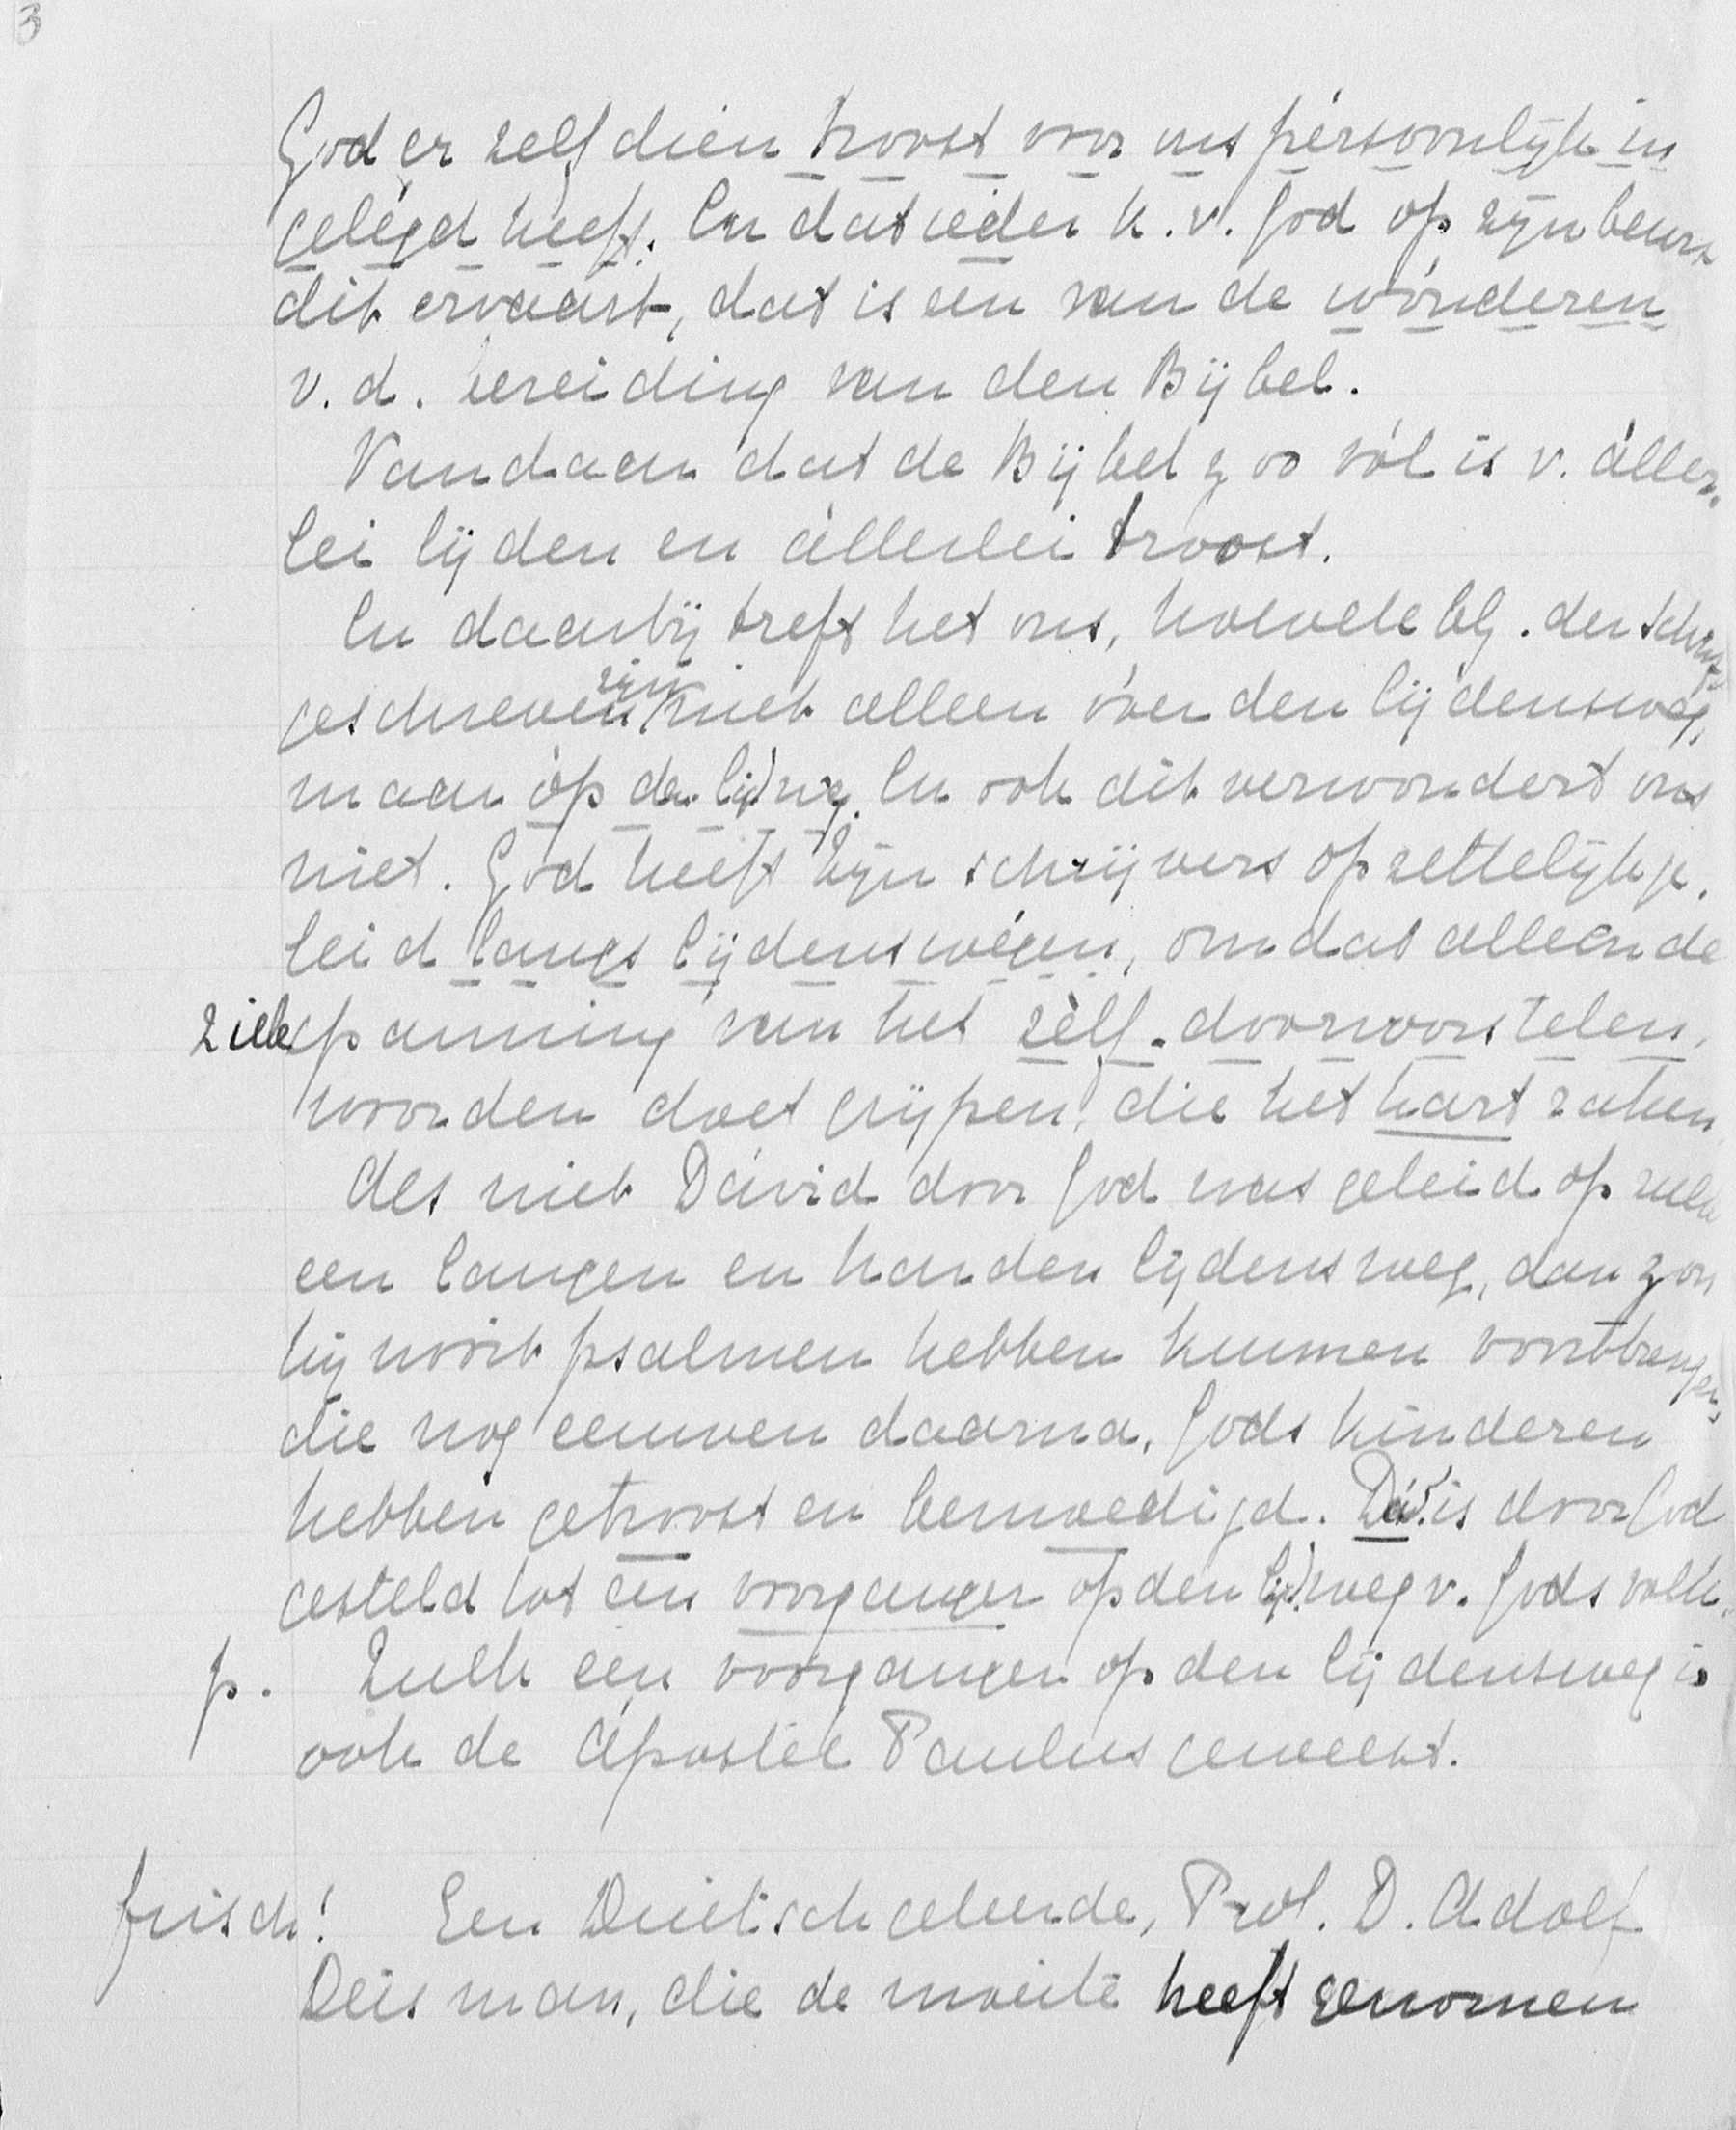 3
God er zelf dien troost voor ons pérsoonlijk in
gelégd heeft. En dat ieder k. v. God op zijn beurt
dit ervaart, dat is een van de wónderen
v. d. bereiding van den Bijbel.
Vandaar dat de Bijbel zoo vól is v. áller-
lei lijden en állerlei troost.
En daarbij treft het ons, hoevele blz. der Schrift
geschreven zijn niet alleen vóor den lijdensweg,
maar óp den lijdweg. En ook dit verwondert ons
niet. God heeft Zijn schrijvers opzettelijk ge-
leid langs lijdenswégen, omdat alleen de
zielspanning van het zèlf-doorworstelen,
woorden doet grijpen, die het hart raken.
Als niet Dávid door God was geleid op zulk
een langen en harden lijdensweg, dan zou
hij nooit psalmen hebben kunnen voortbrengen,
die nog eeuwen daarna, Gods kinderen
hebben getroost en bemoedigd. Dáv. is door God
gesteld tot een voorganger op den lijd.weg v. Gods volk.
p. Zulk een voorganger op den lijdensweg is
ook de Apostel Paulus geweest.
frisch! Een Duitsch geleerde, Prof. D. Adolf
Deisman, die de moeite heeft genomen